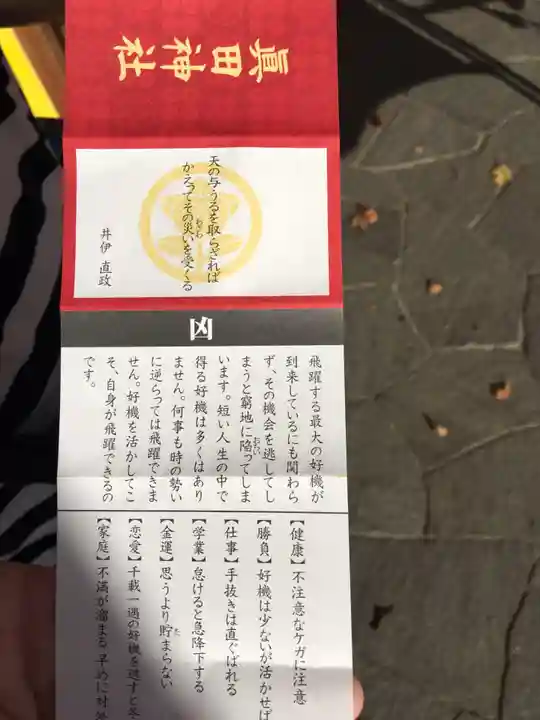 眞田神社
天の与うるを取らざれば
かえってその災いを受くる
わざわ
井伊 直政
凶
飛躍する最大の好機が
到来しているにも関わら
ず、その機会を逃してし
まうと窮地に陥ってしま
おちい
います。短い人生の中で
得る好機は多くはあり
ません。何事も時の勢い
に逆らっては飛躍できま
せん。好機を活かしてこ
そ、自身が飛躍できるの
です。
【健康】不注意なケガに注意
【勝負】好機は少ないが活かせば
【仕事】手抜きは直ぐばれる
【学業】怠けると急降下する
【金運】思うより貯まらない
た
【恋愛】千載一遇の好機を逃すと
【家庭】不満が溜まる 早めに対